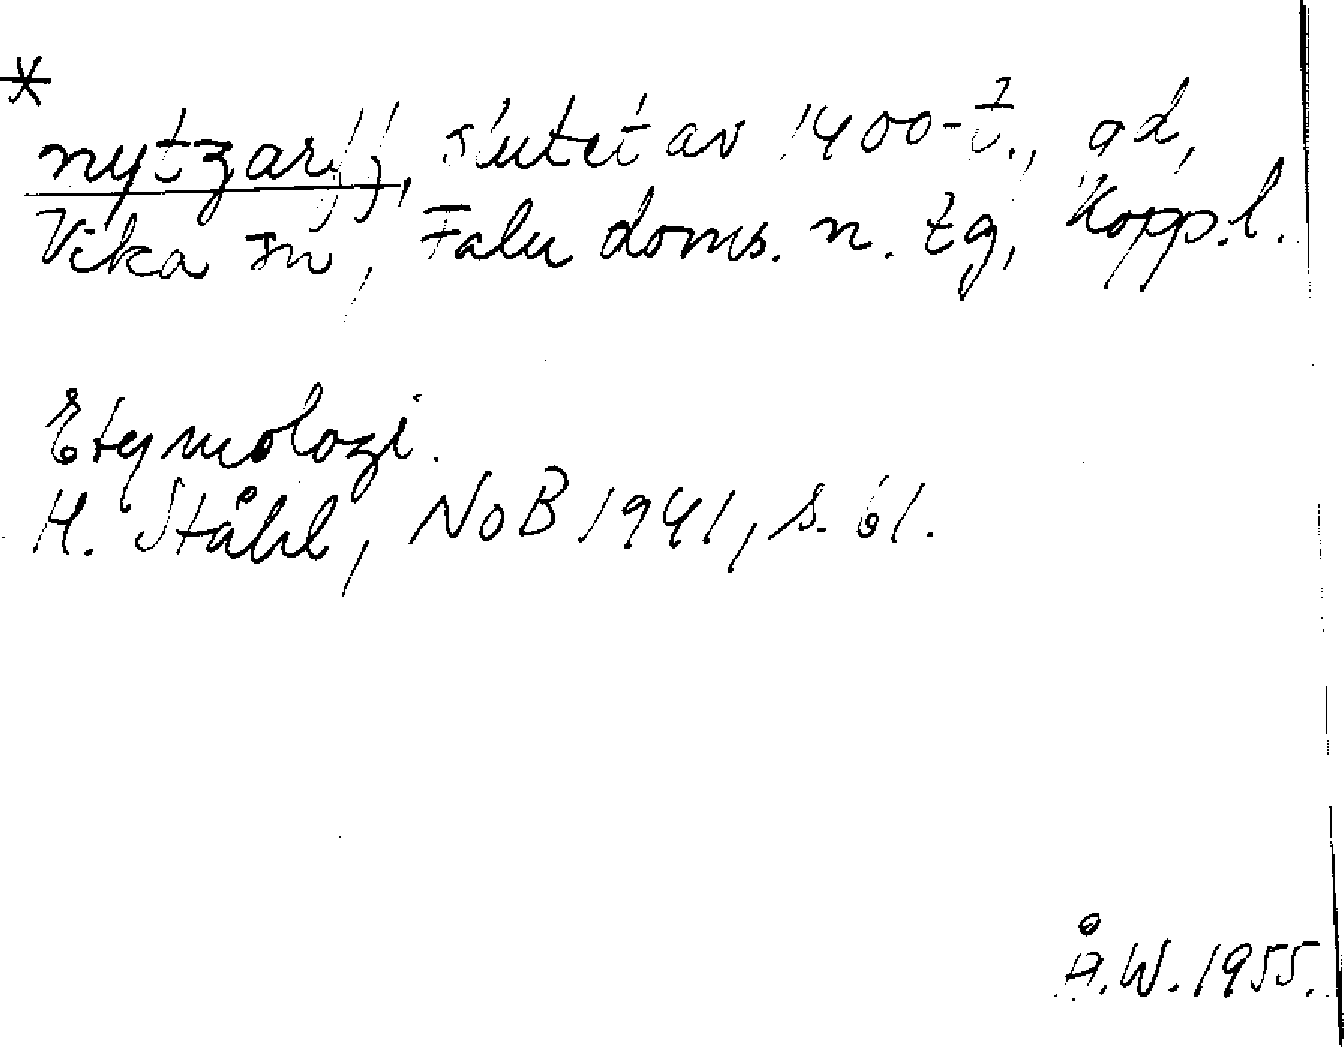 *
nytzarff, slutet av 1400-t., ad,
Vika sn, Falu doms. n. tg, Kopp.l.
Etymologi.
H. Ståhl, NoB 1941, s. 61.
Å.W. 1955.